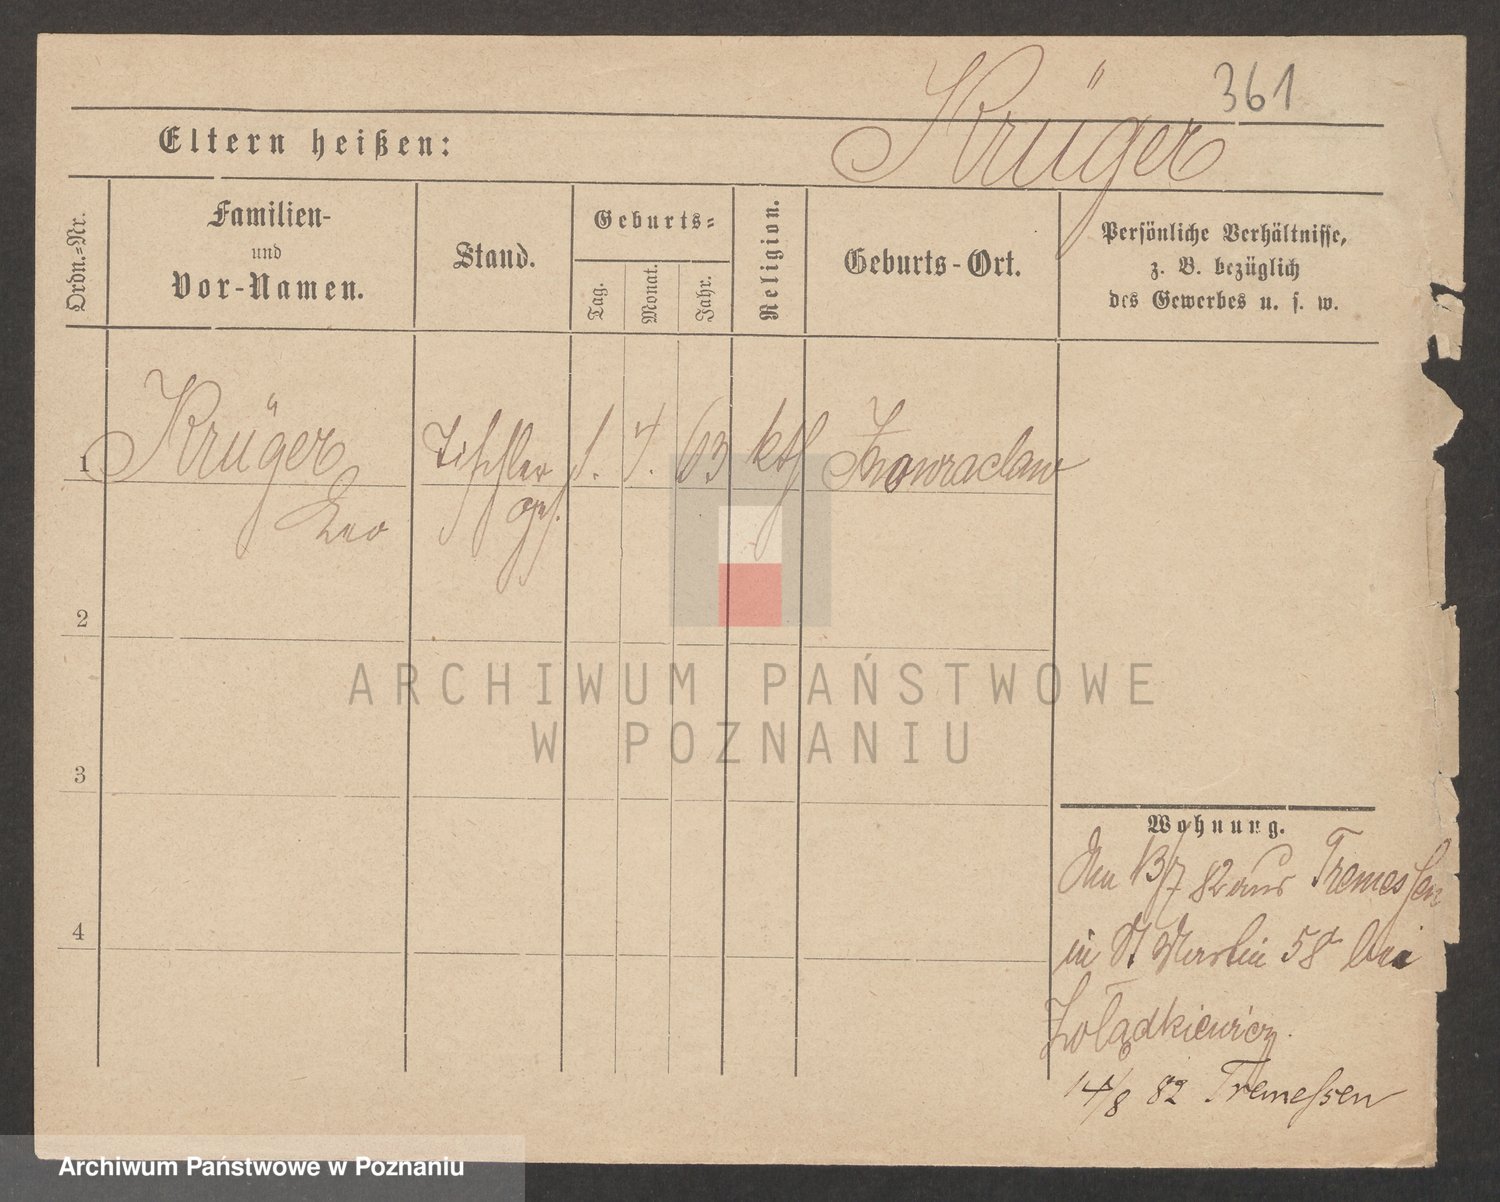 361
Krüger
Eltern heißen:
Ordn.=Nr.
Familien-
und
Vor-Namen.
Stand.
Geburts=
Tag.
Monat.
Jahr.
Religion.
Geburts-Ort.
Persönliche Verhältnisse,
z. B. bezüglich
des Gewerbes u. s. w.
1
Krüger
Leo
Tischler
ges.
1.
4.
63
kth
Inowraclaw
2
3
4
Wohnung.
Den 13/7 82 aus Tremessen
in St Martin 58 bei
Żołądkiewicz.
14/8 82 Tremessen
ARCHIWUM PAŃSTWOWE
W POZNANIU
Archiwum Państwowe w Poznaniu